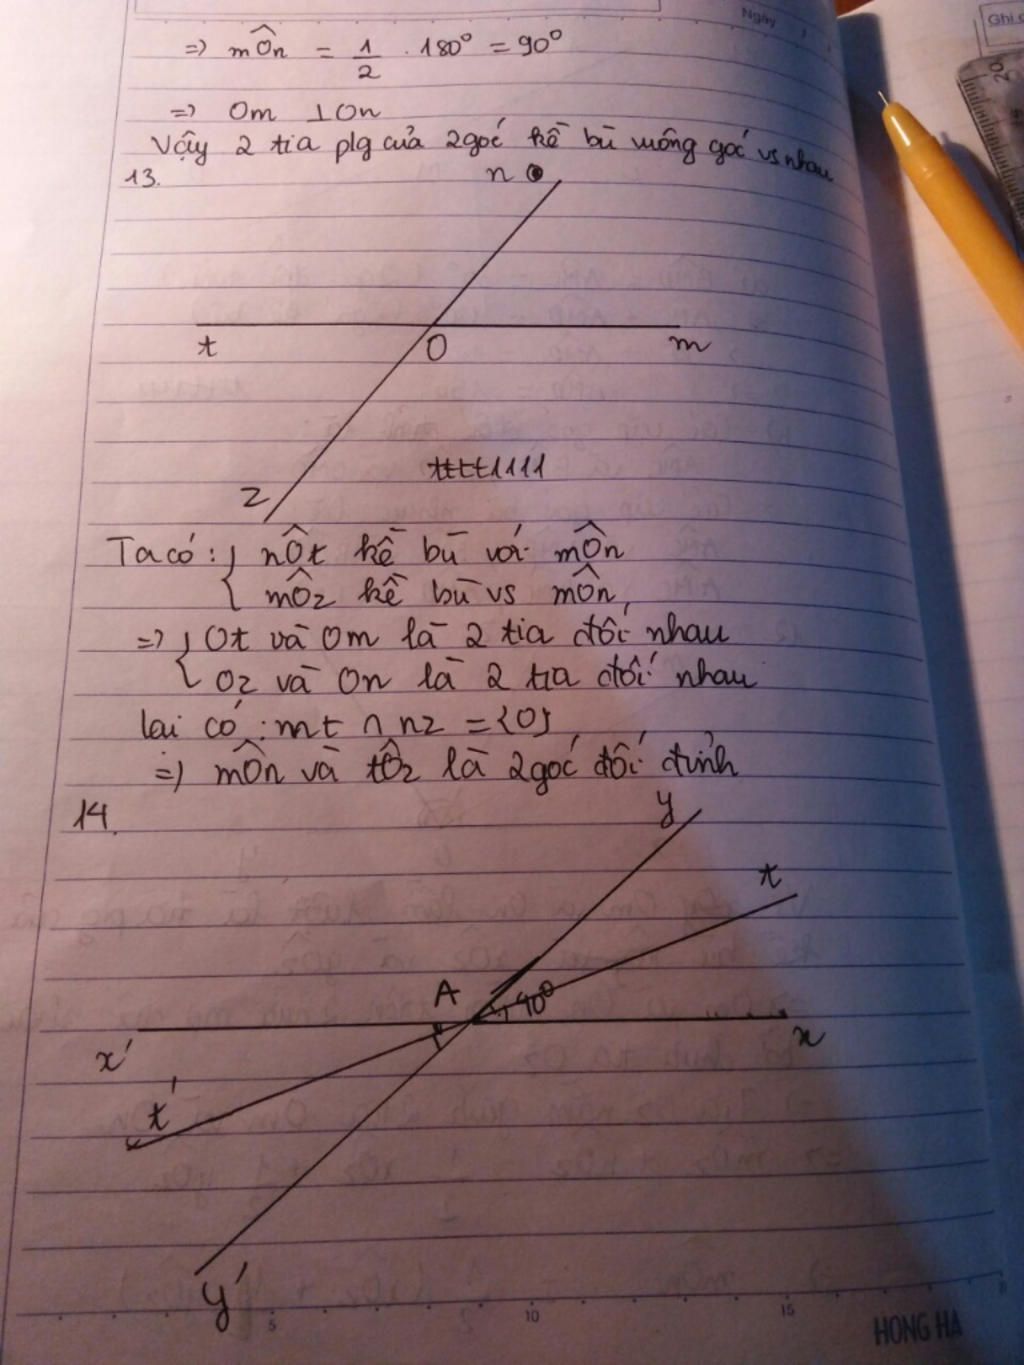 Ngày
Ghi c
20
=> mÔn = 1/2 . 180° = 90°
=> Om ⊥ On
Vậy 2 tia plg của 2 góc kề bù vuông góc vs nhau
13.
n
t O m
z
tttt1111
Ta có: { nÔt kề bù với mÔn
{ mÔz kề bù vs mÔn,
=> { Ot và Om là 2 tia đối nhau
{ Oz và On là 2 tia đối nhau
lại có: mt ∩ nz = {O},
=> mÔn và tÔz là 2 góc đối đỉnh
14.
y
t
A
x' x
t'
y'
5 10 15
HONG HA